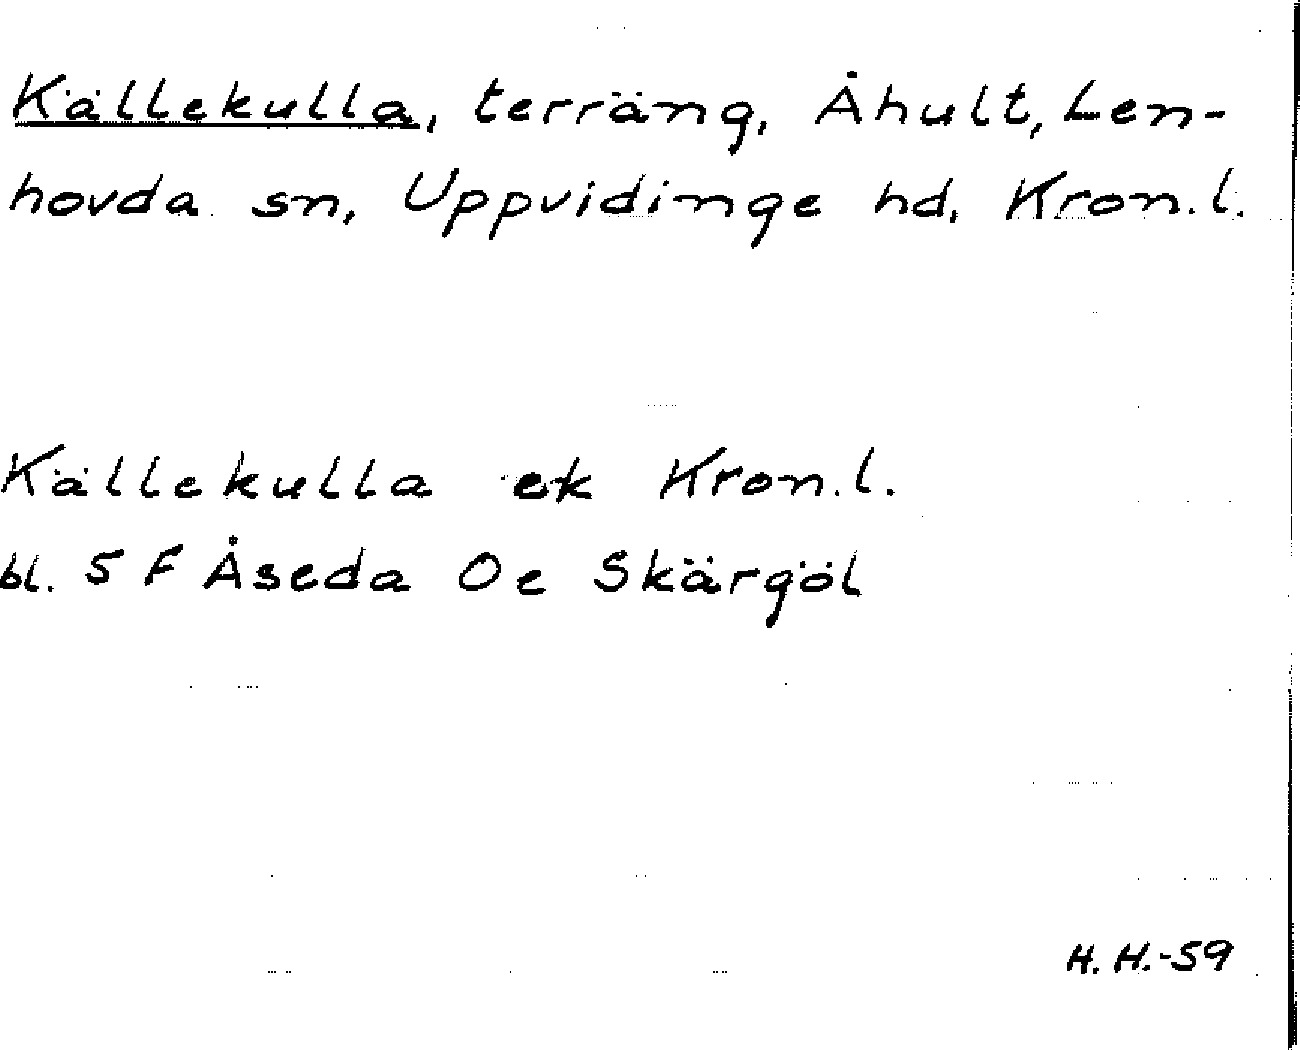 Källekulla, terräng, Åhult, Len-
hovda sn, Uppvidinge hd, Kron.l.
Källekulla ek Kron.l.
bl. 5 F Åseda Oe Skärgöl
H. H.-59